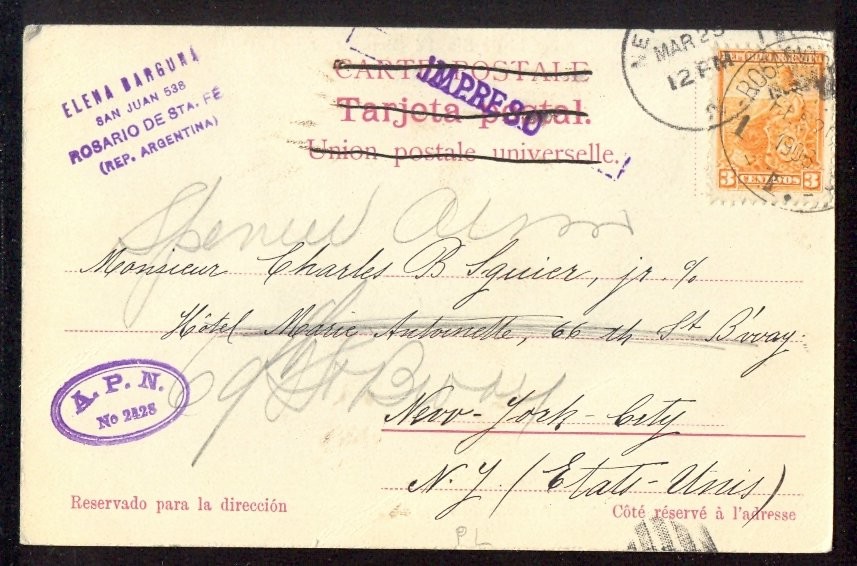 ELENA BARGUNÁ
SAN JUAN 538
ROSARIO DE STA. FÉ
(REP. ARGENTINA)
CARTE POSTALE
IMPRESO
Tarjeta postal.
Union postale universelle.
MAR 25
12 PM
3 CENTAVOS 3
Spencer Arms
Monsieur Charles B Squier, jr. %
Hôtel Marie Antoinette, 66 th St B'way.
69 St. Bway
A. P. N.
No 2428
New-York-City
N. Y. (Etats-Unis)
Reservado para la dirección
Côté réservé à l'adresse
PL